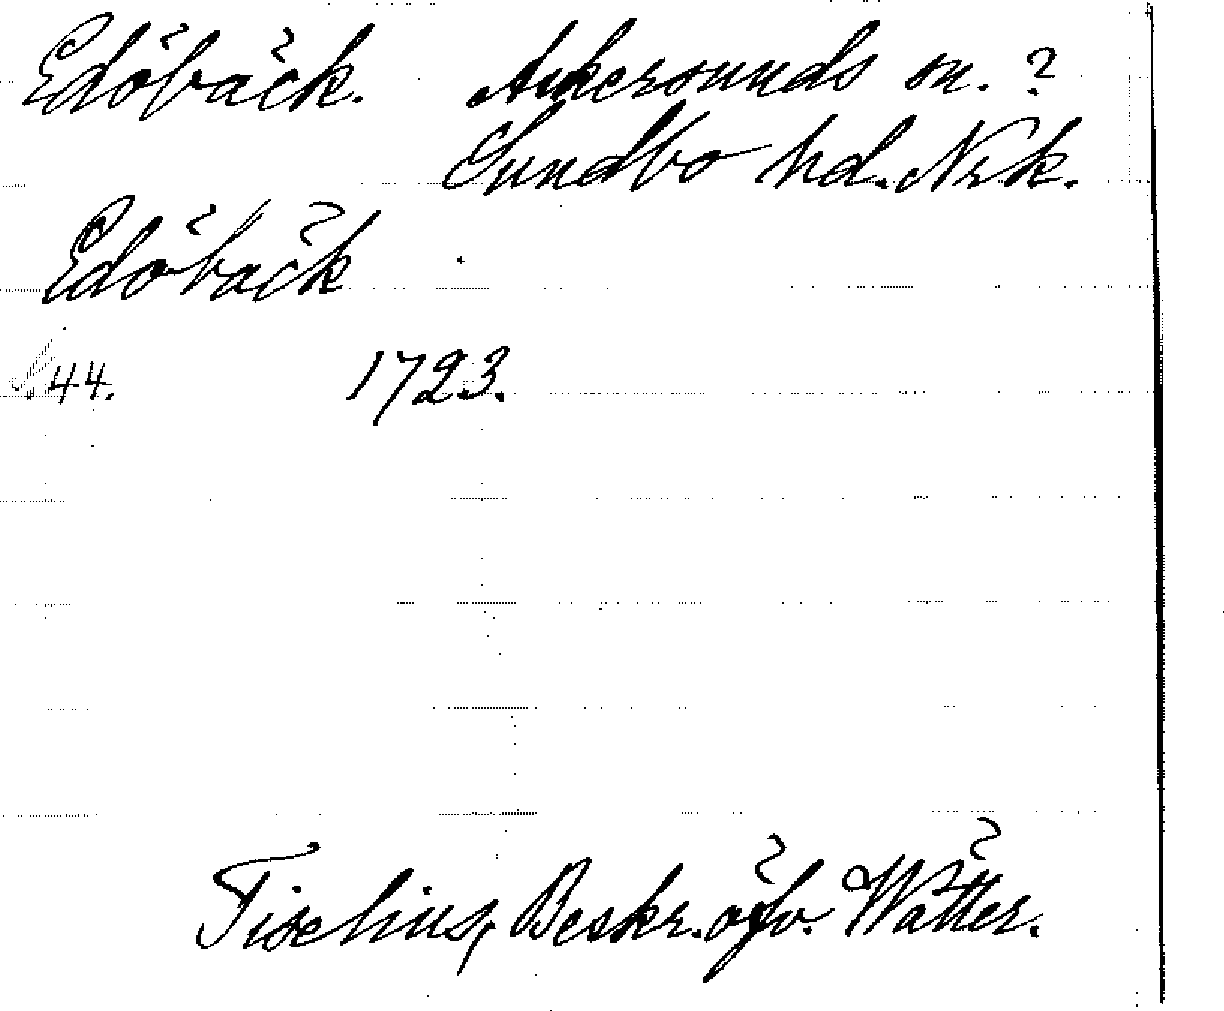 Edöbäck. Askersunds sn. ?
Sundbo hd. Nrk.
Edöbäck
s. 44. 1723.
Tiselius, Beskr. öfv. Wätter.